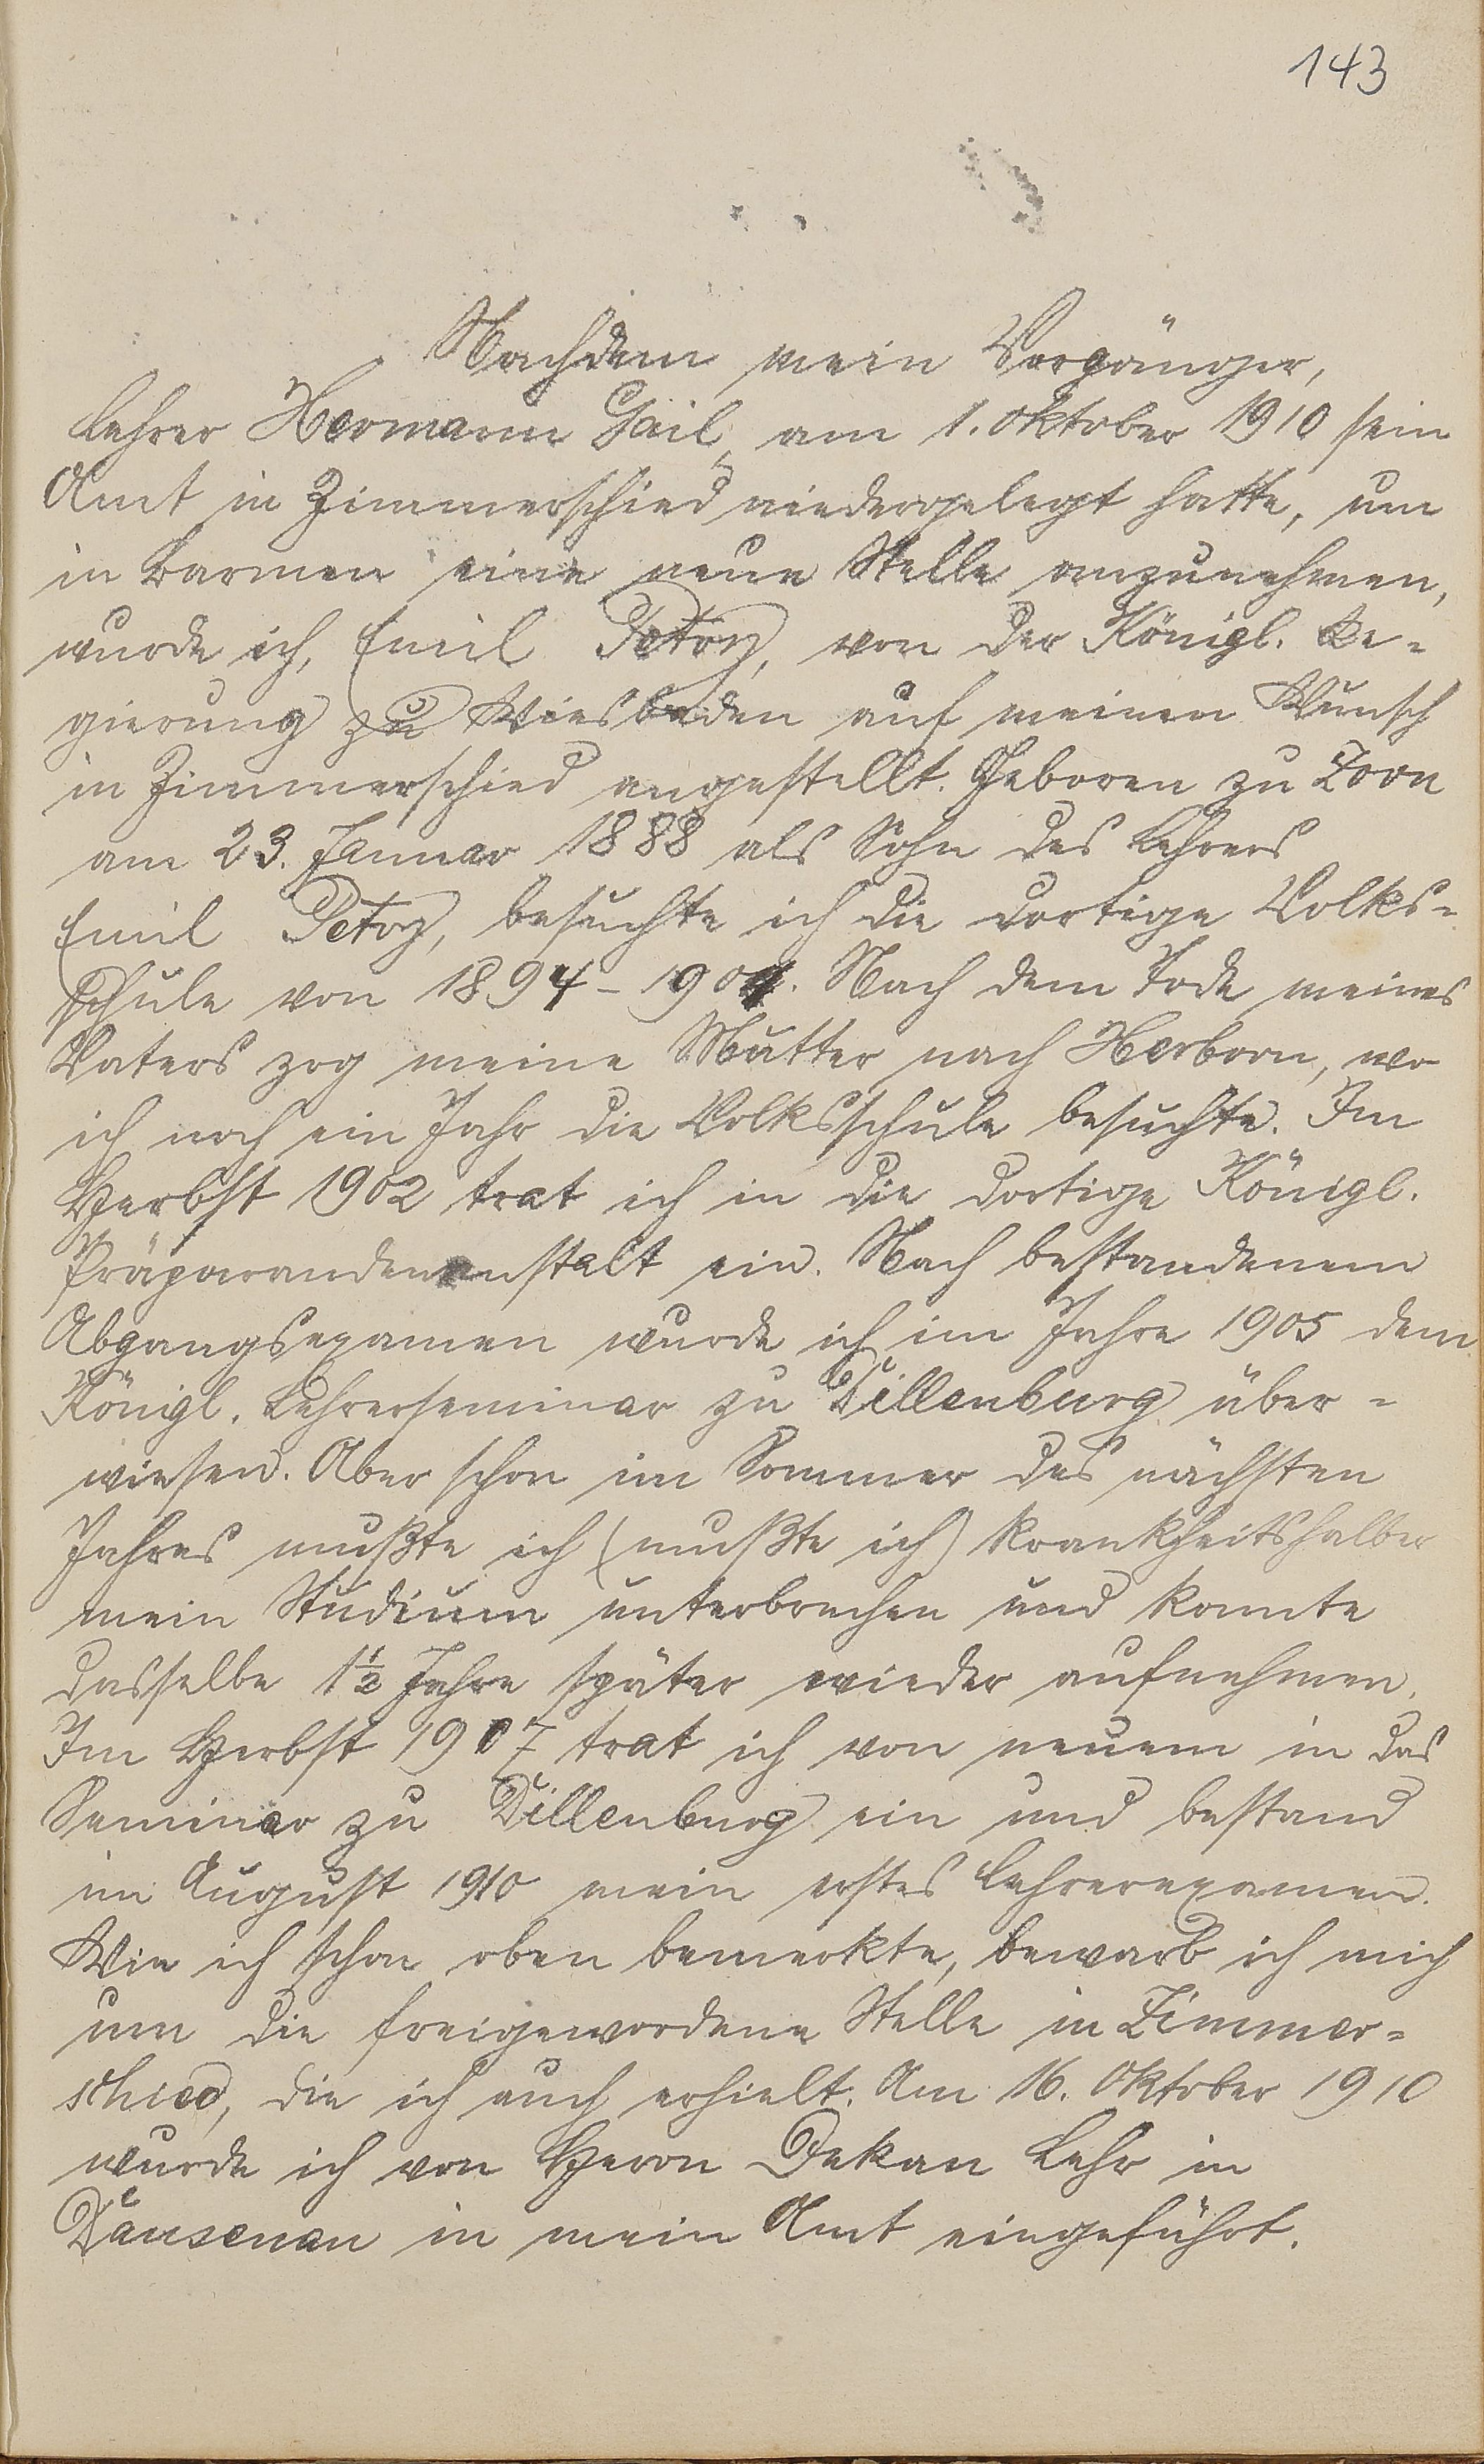 143
Nachdem mein Vorgänger,
Lehrer Hermann Gail, am 1. Oktober 1910 sein
Amt in Zimmerschied niedergelegt hatte, um
in Barmen eine neue Stelle anzunehmen,
wurde ich, Emil Petry, von der Königl. Re-
gierung zu Wiesbaden auf meinen Wunsch
in Zimmerschied angestellt. Geboren zu Zorn
am 23. Januar 1888 als Sohn des Lehrers
Emil Petry, besuchte ich die dortige Volks-
schule von 1894 - 1901. Nach dem Tode meines
Vaters zog meine Mutter nach Herborn, wo
ich noch ein Jahr die Volksschule besuchte. Im
Herbst 1902 trat ich in die dortige Königl.
Präparandenanstalt ein. Nach bestandenem
Abgangsexamen wurde ich im Jahre 1905 dem
Königl. Lehrerseminar zu Dillenburg über-
wiesen. Aber schon im Sommer des nächsten
Jahres mußte ich (mußte ich) krankheitshalber
mein Studium unterbrechen und konnte
dasselbe 1½ Jahre später wieder aufnehmen.
Im Herbst 1907 trat ich von neuem in das
Seminar zu Dillenburg ein und bestand
im August 1910 mein erstes Lehrerexamen.
Wie ich schon oben bemerkte, bewarb ich mich
um die freigewordene Stelle in Zimmer-
schied, die ich auch erhielt. Am 16. Oktober 1910
wurde ich von Herrn Dekan Lehr in
Dausenau in mein Amt eingeführt.